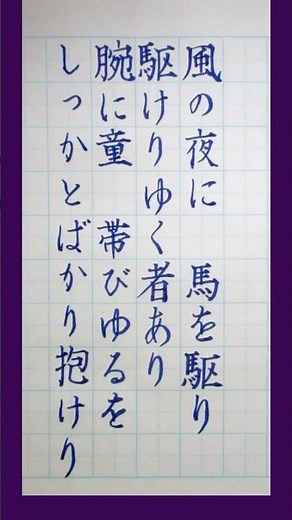 風の夜に　馬を駆り
駆けりゆく者あり
腕に童　帯びゆるを
しっかとばかり抱けり